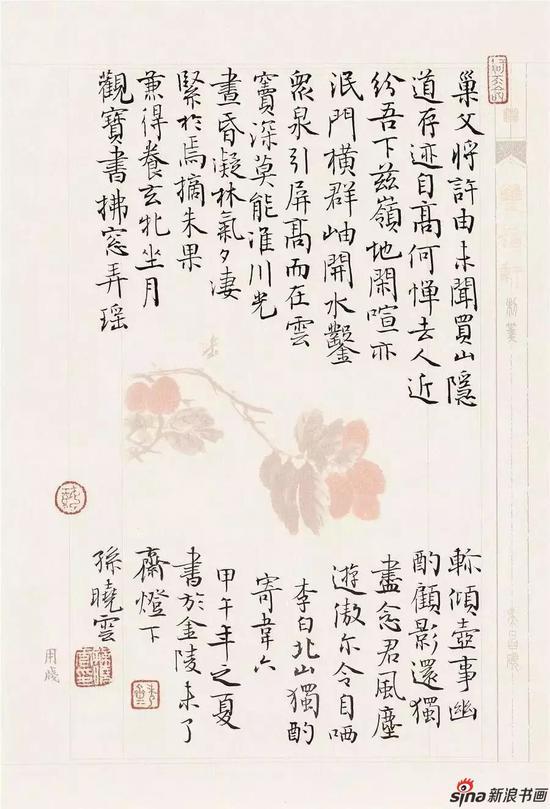 巢父將許由未聞買山隱
道存迹自高何憚去人近
紛吾下茲嶺地閑喧亦
泯門橫群岫開水鑿
衆泉引屏高而在雲
竇深莫能准川光
晝昏凝林氣夕凄
緊於焉摘朱果
兼得養玄牝坐月
觀寶書拂窓弄瑤
軫傾壺事幽
酌顧影還獨
盡念君風塵
遊傲尔令自哂
李白北山獨酌
寄韋六
甲午年之夏
書於金陵未了
齋燈下
孫曉雲
用牋
sina新浪书画